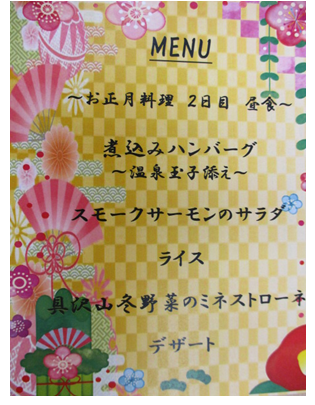 MENU
～お正月料理 2日目 昼食～
煮込みハンバーグ
～温泉玉子添え～
スモークサーモンのサラダ
ライス
具沢山冬野菜のミネストローネ
デザート